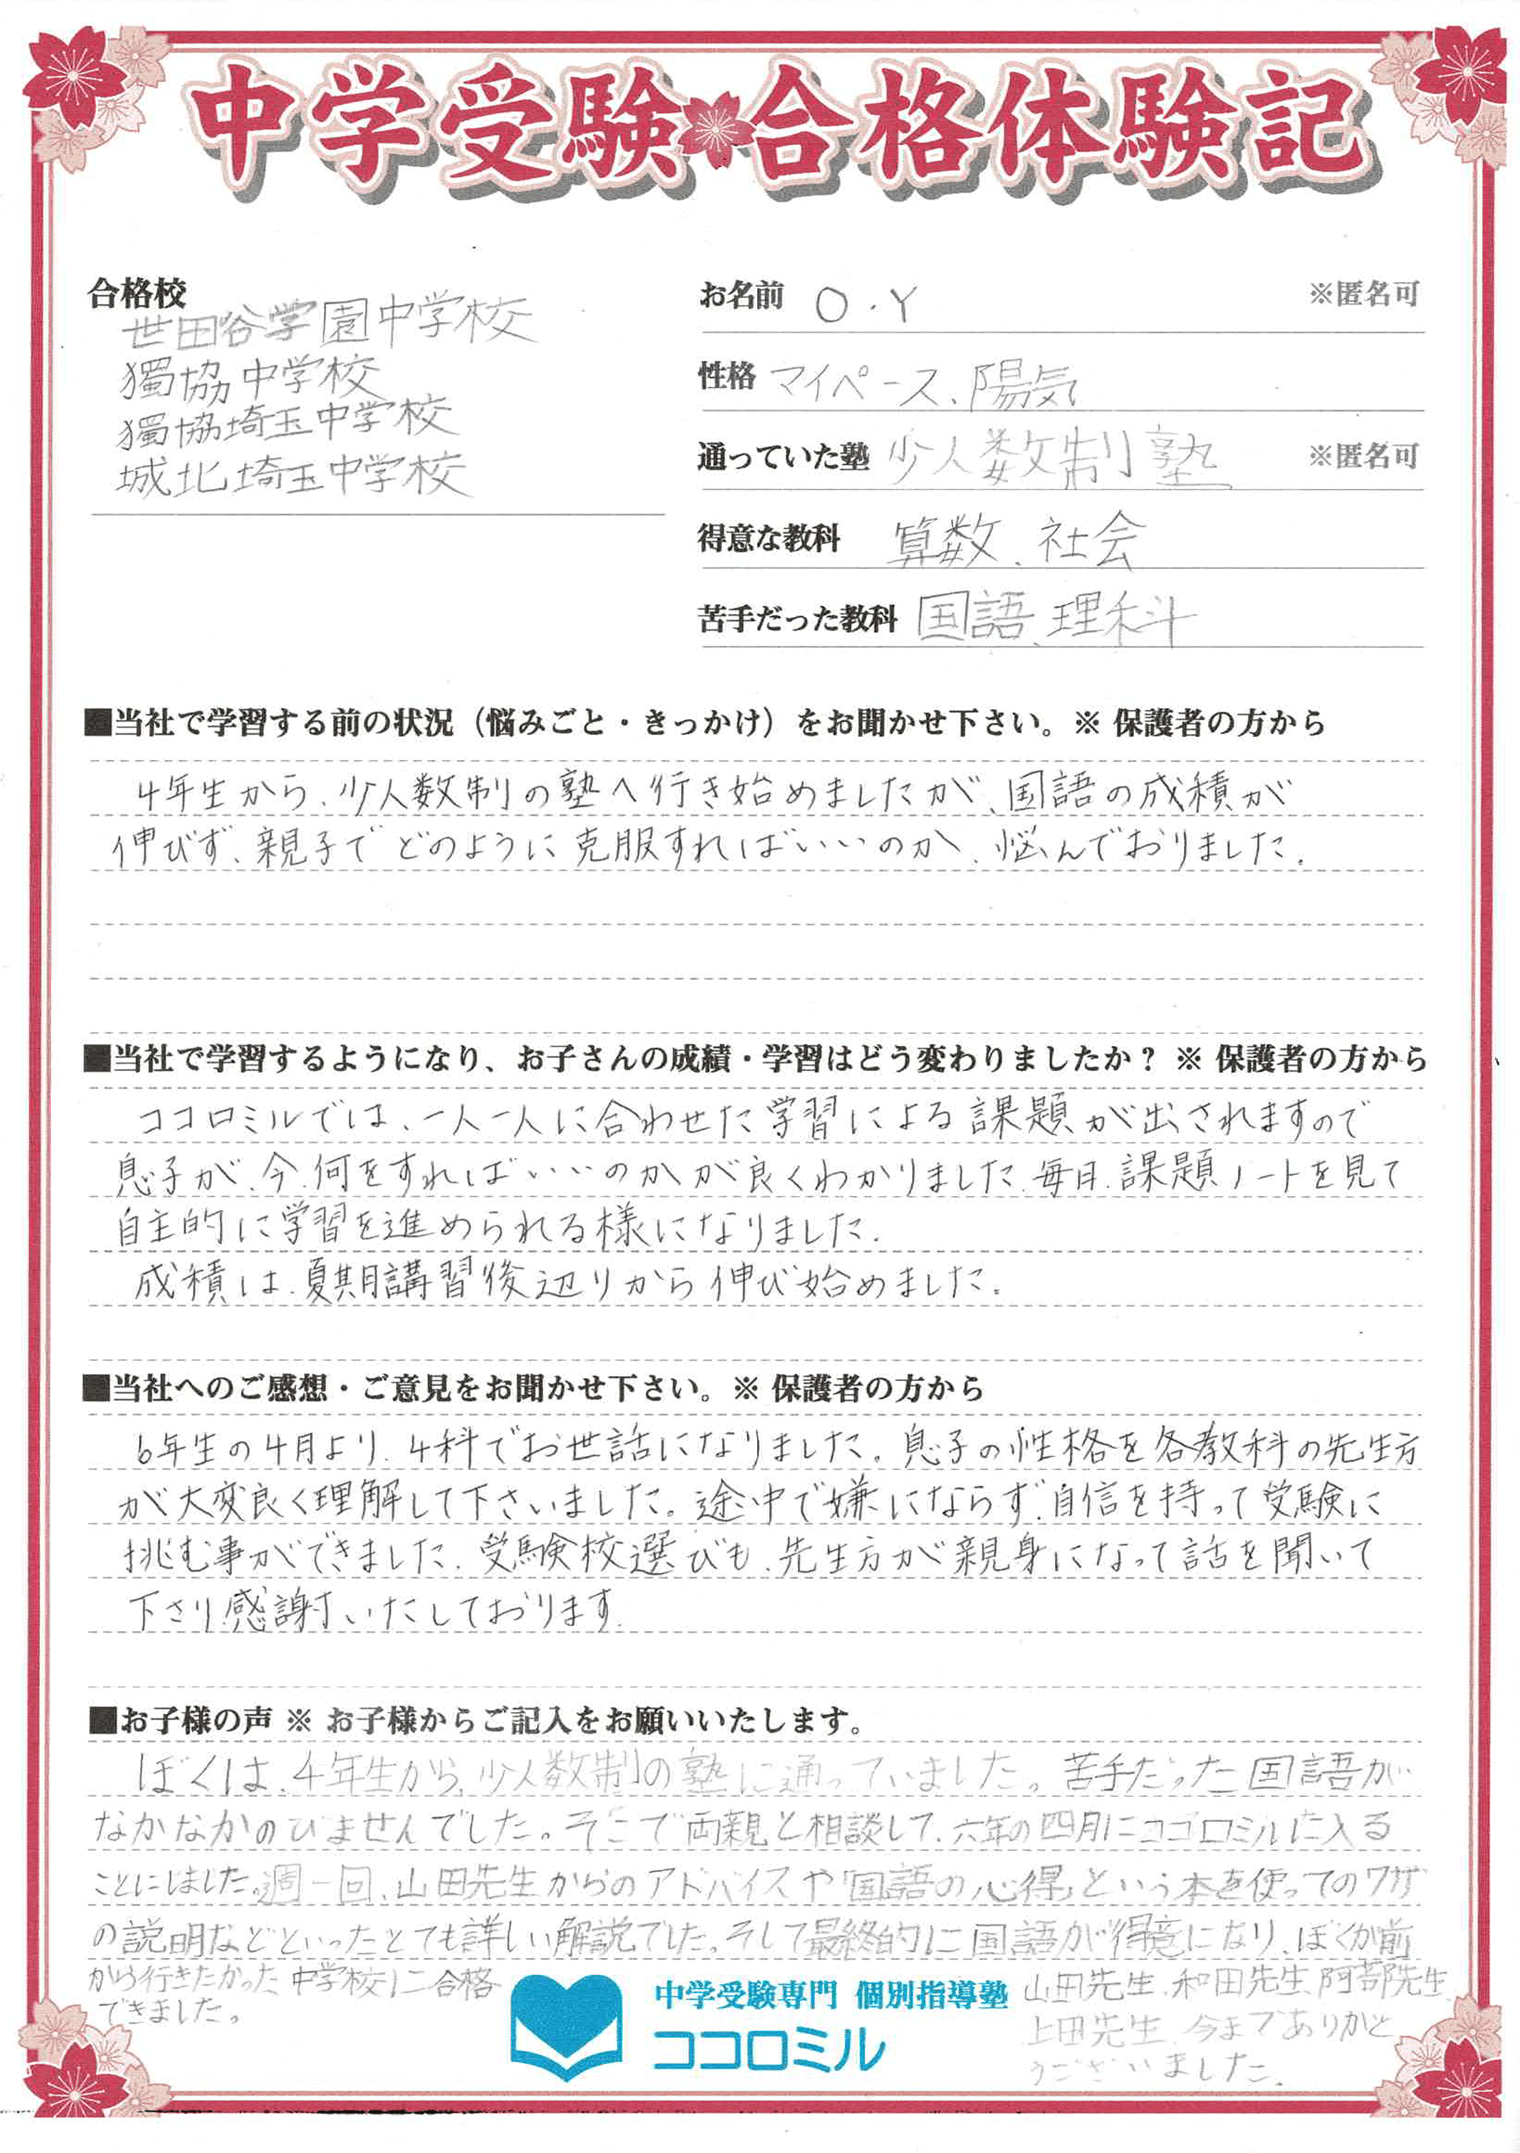 中学受験合格体験記
合格校
世田谷学園中学校
獨協中学校
獨協埼玉中学校
城北埼玉中学校
お名前 O.Y ※匿名可
性格 マイペース、陽気
通っていた塾 少人数制塾 ※匿名可
得意な教科 算数、社会
苦手だった教科 国語、理科
■当社で学習する前の状況（悩みごと・きっかけ）をお聞かせ下さい。※ 保護者の方から
4年生から、少人数制の塾へ行き始めましたが、国語の成績が
伸びず、親子でどのように克服すればいいのか、悩んでおりました。
■当社で学習するようになり、お子さんの成績・学習はどう変わりましたか？ ※ 保護者の方から
ココロミルでは、一人一人に合わせた学習による課題が出されますので
息子が、今、何をすればいいのかが良くわかりました。毎日、課題ノートを見て
自主的に学習を進められる様になりました。
成積は、夏期講習後辺りから伸び始めました。
■当社へのご感想・ご意見をお聞かせ下さい。※ 保護者の方から
6年生の4月より、4科でお世話になりました。息子の性格を各教科の先生方
が大変良く理解して下さいました。途中で嫌にならず、自信を持って受験に
挑む事ができました。受験校選びも、先生方が親身になって話を聞いて
下さり、感謝いたしております。
■お子様の声 ※ お子様からご記入をお願いいたします。
ぼくは、4年生から、少人数制の塾に通っていました。苦手だった国語が
なかなかのびませんでした。そこで両親と相談して、六年の四月にココロミルに入る
ことにしました。週一回、山田先生からのアドバイスや「国語の心得」という本を使ってのワザ
の説明などといったとても詳しい解説でした。そして最終的に国語が得意になり、ぼくが前
から行きたかった中学校に合格
できました。
中学受験専門 個別指導塾
ココロミル
山田先生、和田先生、阿部先生、
上田先生、今までありがと
うございました。